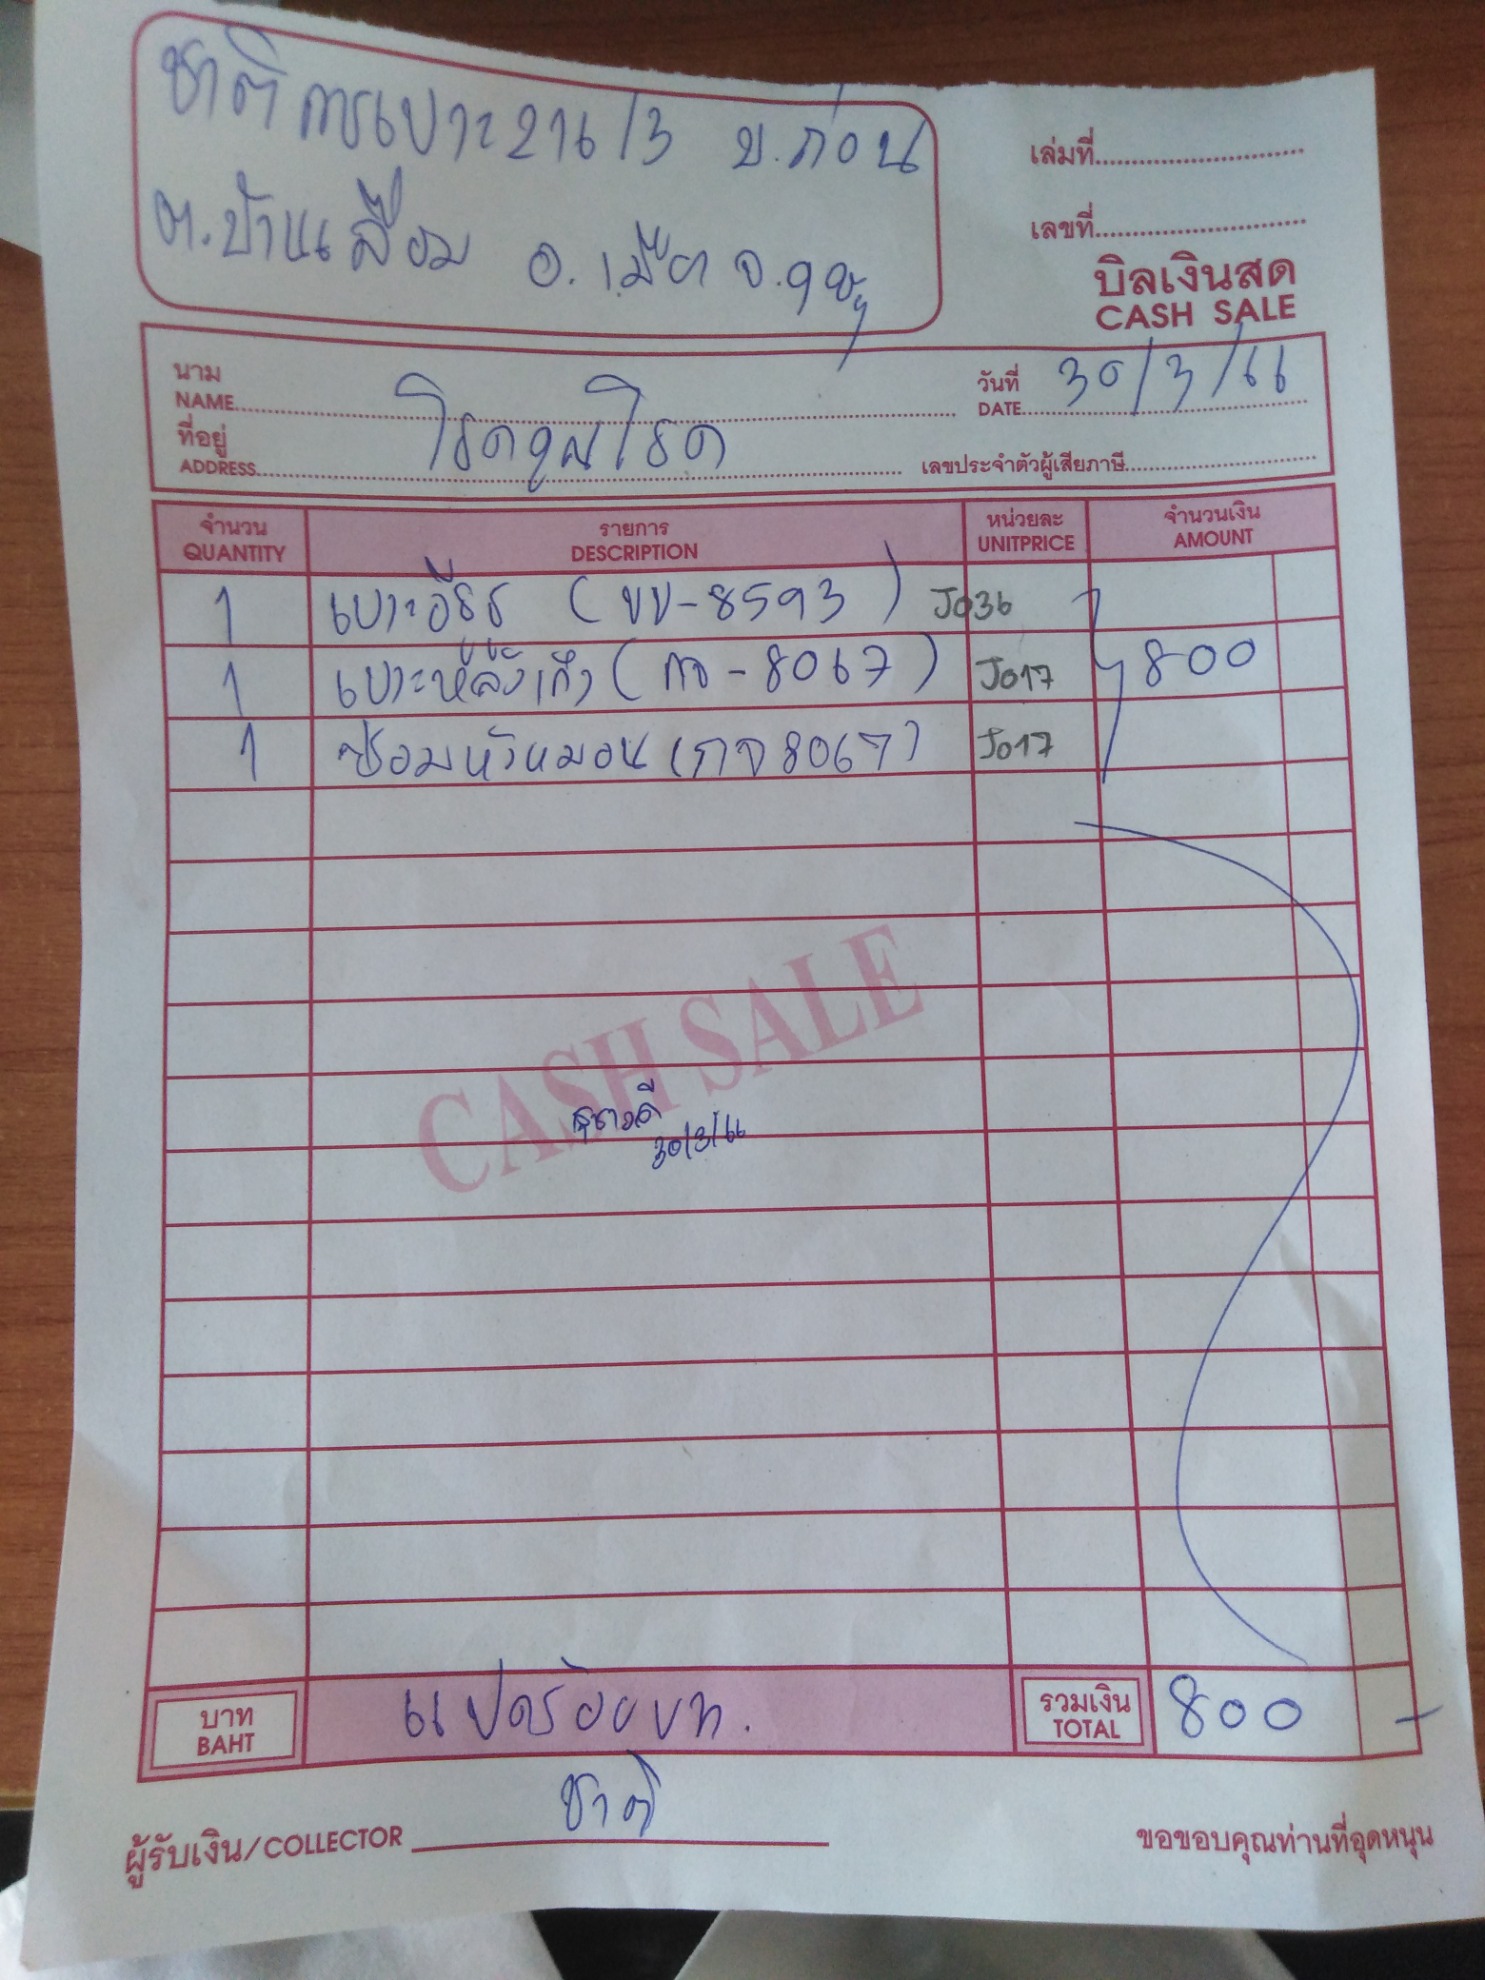 ชาติการเบาะ 216/3 บ.ก่อน
ต.บ้านเลื่อม อ.เมือง จ.
เล่มที่
เลขที่
บิลเงินสด
CASH SALE
นาม
NAME
วันที่ 30/3/66
DATE
ที่อยู่
ADDRESS
เลขประจำตัวผู้เสียภาษี
จำนวน รายการ หน่วยละ จำนวนเงิน
QUANTITY DESCRIPTION UNITPRICE AMOUNT
1 เบาะ (บบ-8593) J036
1 เบาะหลังเก๋ง (กจ-8067) J017 800
1 ซ่อมหัวหมอน (กจ8067) J017
CASH SALE
30/3/66
บาท แปดร้อยบาท. รวมเงิน 800 -
BAHT TOTAL
ชาติ
ผู้รับเงิน/COLLECTOR ขอขอบคุณท่านที่อุดหนุน